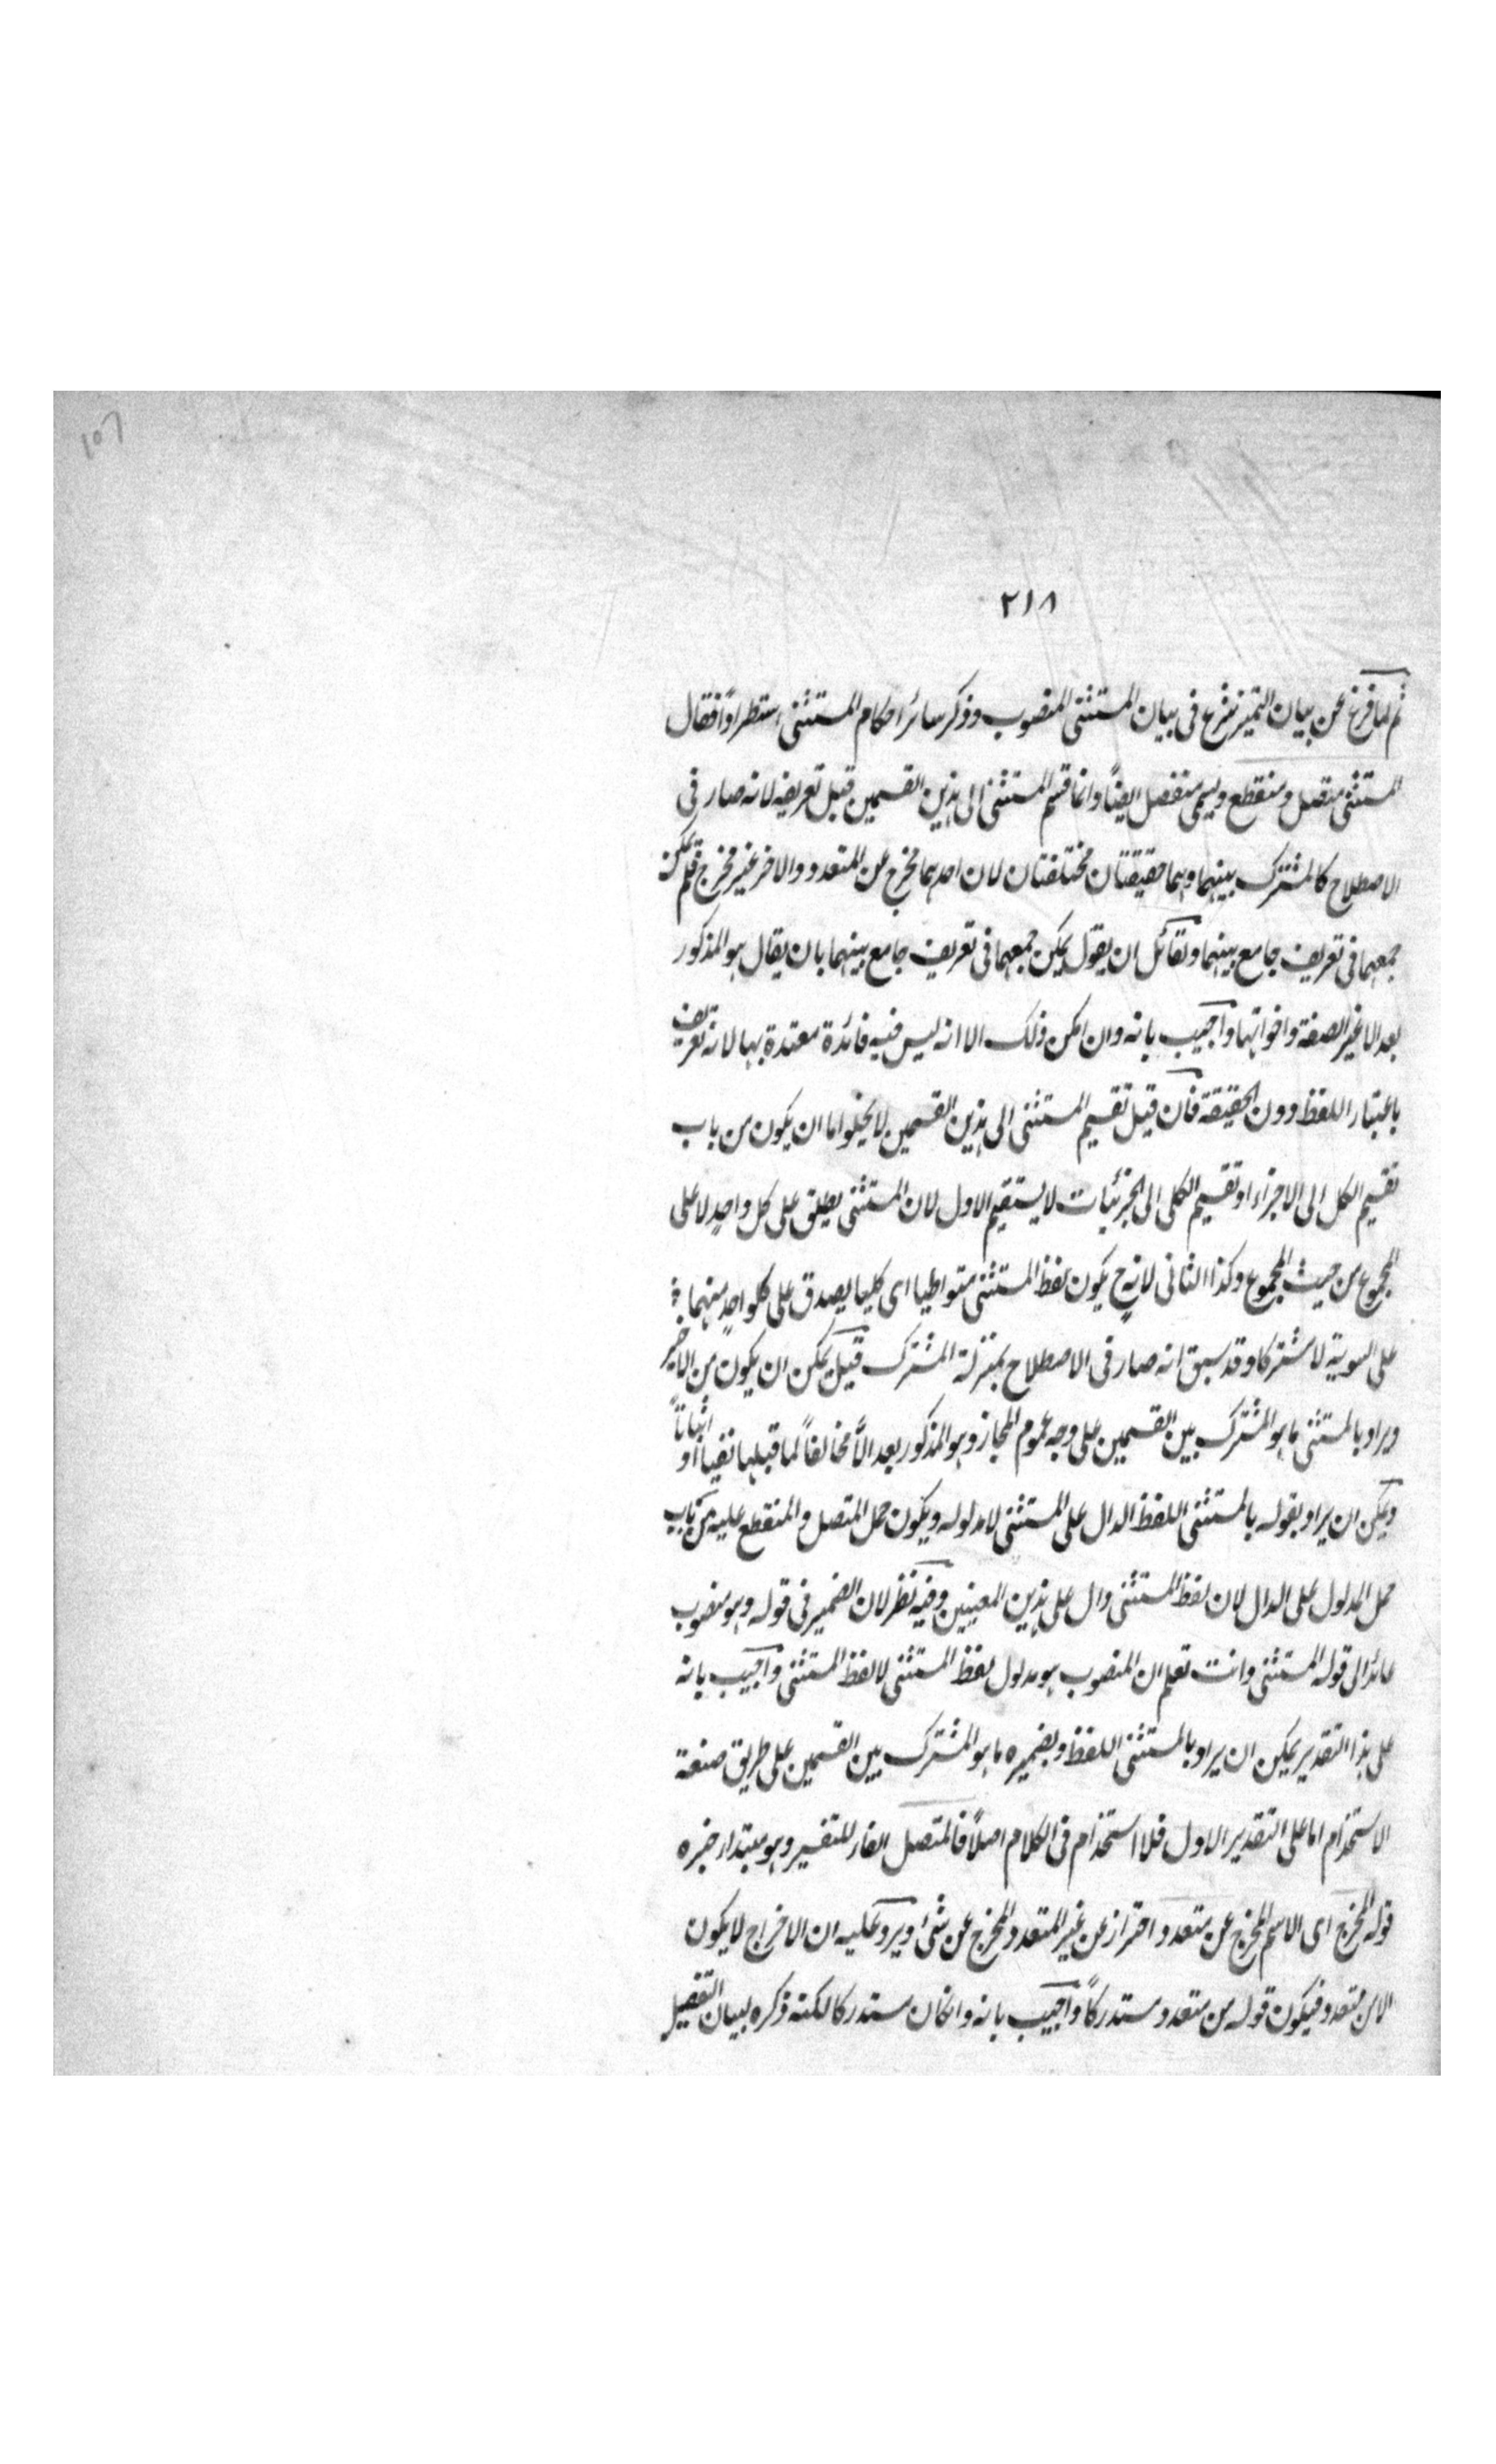 ٢١٨
ثم لما فرغ عن بيان التميز شرع فى بيان المستثنى المنصوب وذكر سائر احكام المستثنى استطراداً فقال
المستثنى متصل ومنقطع ويسمى منفصل ايضاً وانما قسم المستثنى الى هذين القسمين قبل تعريفه لانه صار فى
الاصطلاح كالمشترك بينهما وهما حقيقتان مختلفتان لان احدهما مخرج عن المتعدد والاخر غير مخرج فلم يمكن
جمعهما فى تعريف جامع بينهما ولقائل ان يقول يمكن جمعهما فى تعريف جامع بينهما بان يقال هو المذكور
بعد الا غير الصفة واخواتها واجيب بانه وان امكن ذلك الا انه ليس فيه فائدة معتدة بها لانه تعريف
باعتبار اللفظ دون الحقيقة فان قيل تقسيم المستثنى الى هذين القسمين لا يخلوا اما ان يكون من باب
تقسيم الكل الى الاجزاء او تقسيم الكلى الى الجزئيات لا يستقيم الاول لان المستثنى يطلق على كل واحد لا على
المجموع من حيث المجموع وكذا الثانى لانه ح يكون لفظ المستثنى متواطيا اى كليا يصدق على كلواحد منهما
على السوية لا مشتركا وقد سبق انه صار فى الاصطلاح بمنزلة المشترك قيل يمكن ان يكون من الاخير
ويراد بالمستثنى ما هو المشترك بين القسمين على وجه عموم المجاز وهو المذكور بعد الّا مخالفاً لما قبلها نفياً او اثباتاً
ويمكن ان يراد بقوله بالمستثنى اللفظ الدال على المستثنى لا مدلوله ويكون حمل المتصل والمنقطع عليه من باب
حمل المدلول على الدال لان لفظ المستثنى دال على هذين المعنيين وفيه نظر لان الضمير فى قوله وهو منصوب
عائد الى قوله المستثنى وانت تعلم ان المنصوب هو مدلول لفظ المستثنى لا لفظ المستثنى واجيب بانه
على هذا التقدير يمكن ان يراد بالمستثنى اللفظ وبضميره ما هو المشترك بين القسمين على طريق صنعة
الاستخذام اما على التقدير الاول فلا استخذام فى الكلام اصلاً فالمتصل الفاء للتفسير وهو مبتدا وخبره
قوله المخرج اى الاسم المخرج عن متعدد احتراز عن غير المتعدد المخرج عن شئ ويرد عليه ان الاخراج لا يكون
الا من متعدد فيكون قوله من متعدد مستدركاً واجيب بانه وانكان مستدركا لكنه ذكره لبيان التفصيل